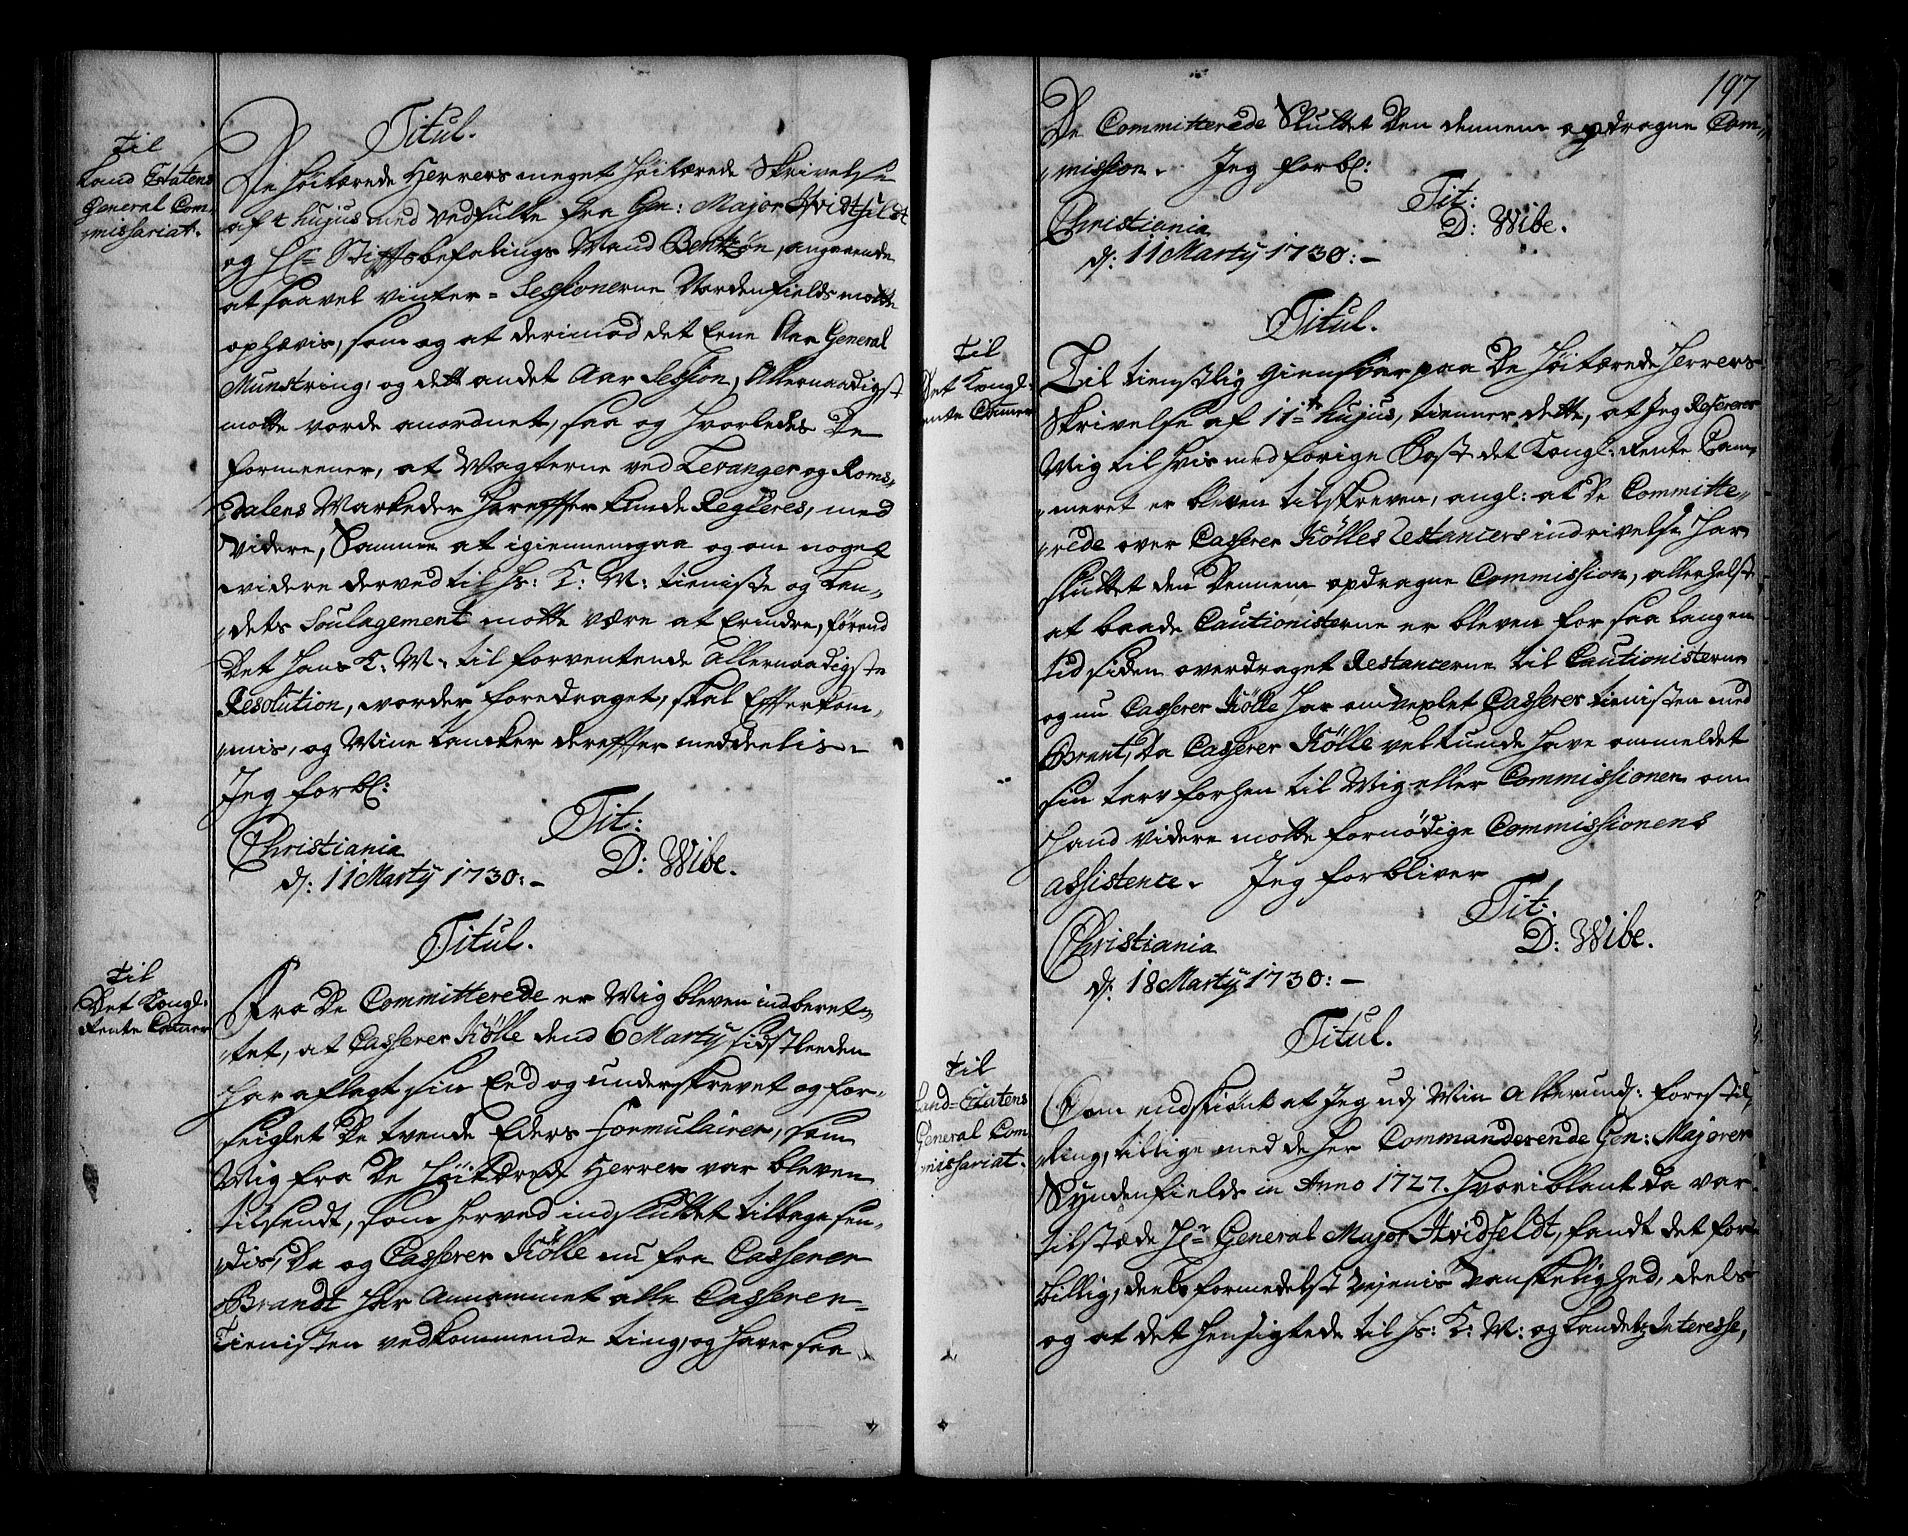 Til
Land Etatens
General Com-
missariat.
Titul.
De Høitærede Herrers meget Høitærede Skrivelse
af 4 hujus med Vedfulte fra Gen: Major Hvidtfeldt
og Hr Stiftsbefalings Mand Bentzøn, angaaende
at saavel vinter-Sessionerne Nordenfields motte
ophævis, som og at derimod det Eene Aar General
Munstring, og dett andet Aar Session, Allernaadigst
motte vorde anordnet, saa og Hvorledes De
formeener, at Wagterne ved Levanger og Roms-
dalens Markeder Hareffter kunde Reguleres, med
Videre, Samme at igiennemgaa og om noget
videre derved til Hs: K: M: tieniste og Lan-
dets Soulagement motte være at Erindre, førend
Det Hans K: M: til forventende Allernaadigste
Resolution, vorder foredraget, skal Effterkom-
mis, og Mine tancker dereffter meddeelis.
Jeg forbl:
Tit:
Christiania
d: 11 Marty 1730:-
D: Wibe.
Til
Det Kongl:
Rente Cammer
Titul.
Fra De Committerede er Mig bleven indberet-
tet, at Casserer Kølle dend 6 Marty sidstleeden
Har aflagt sin Eed og underskrevet og for-
seiglet De tvende Eders Formulairer, som
Mig fra De Høitærede Herrer var bleven
tilsendt, som Herved indsluttet tilbage sen-
dis, Da og Casserer Kølle nu fra Casserer
Brandt Har Annammet alle Casserer-
Tienisten vedkommende ting, og Haver saa
197
De Committerede Sluttet Den dennem opdragne Com-
mission. Jeg forbl:
Tit:
Christiania
D: Wibe.
d: 11 Marty 1730:-
Til
Det Kongl:
Rente Cammer
Titul.
Til tienstlig Giensvar paa De Høitærede Herrers
Skrivelse af 11te hujus, tienner dette, at Jeg Refererer
Mig til Hvis med forige Post det Kongl: Rente Cam-
meret er bleven tilskreven, angl: at De Committe-
rede over Casserer Kølles Restancers indrivelse Har
sluttet den Dennem opdragne Commission, allerhelst
at baade Cautionisterne er bleven for saa langen
tid siden overdraget Restancerne til Cautionisterne
og nu Casserer Kølle Har omvexlet Casserer tienisten med
Brant, Da Casserer Kølle vel kunde Have anmeldet
sin tarv forhen til Mig eller Commissionen om
Hand videre motte fornødige Commissionens
assistence. Jeg forbliver
Tit:
Christiania
D: Wibe.
d: 18 Marty 1730:-
Til
Land-Etatens
General Com
missariat.
Titul.
Om endskiønt at Jeg udj Min Allerund: forestil-
ling, tillige med de Her Commanderende Gen: Majorer
Syndenfields in Anno 1727. Hvoriblant Da var
tilstæde Hr General Major Hvidfeldt, fandt det for
billig, deels formedelst Vejenis Vanskelighed, deels
og at det Hensigtede til Hs: K: M: og Landets Interesse,